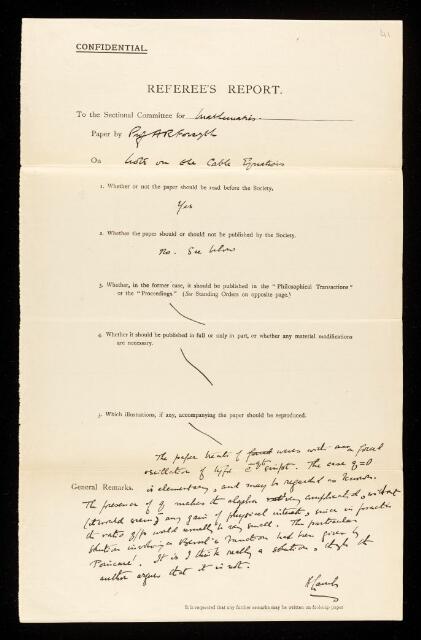 41
CONFIDENTIAL.
REFEREE'S REPORT.
To the Sectional Committee for Mathematics.
Paper by Prof A R Forsyth
On Note on the Cable Equations
1. Whether or not the paper should be read before the Society.
Yes
2. Whether the paper should or should not be published by the Society.
No. See below
3. Whether, in the former case, it should be published in the "Philosophical Transactions"
or the "Proceedings." (See Standing Orders on opposite page.)
4. Whether it should be published in full or only in part, or whether any material modifications
are necessary.
5. Which illustrations, if any, accompanying the paper should be reproduced.
The paper treats of waves with a
oscillation of type sin pt. The case q=0
General Remarks. is elementary, and may be regarded as known.
The presence of q makes the algebra very complicated, without
(it would seem) any gain of physical interest, since in practice
the ratio q/p would usually be very small. The particular
solution involving a Bessel's Function had been given by
Poincaré. It is I think really a solution, though the
author argues that it is not.
H Lamb
It is requested that any further remarks may be written on foolscap paper